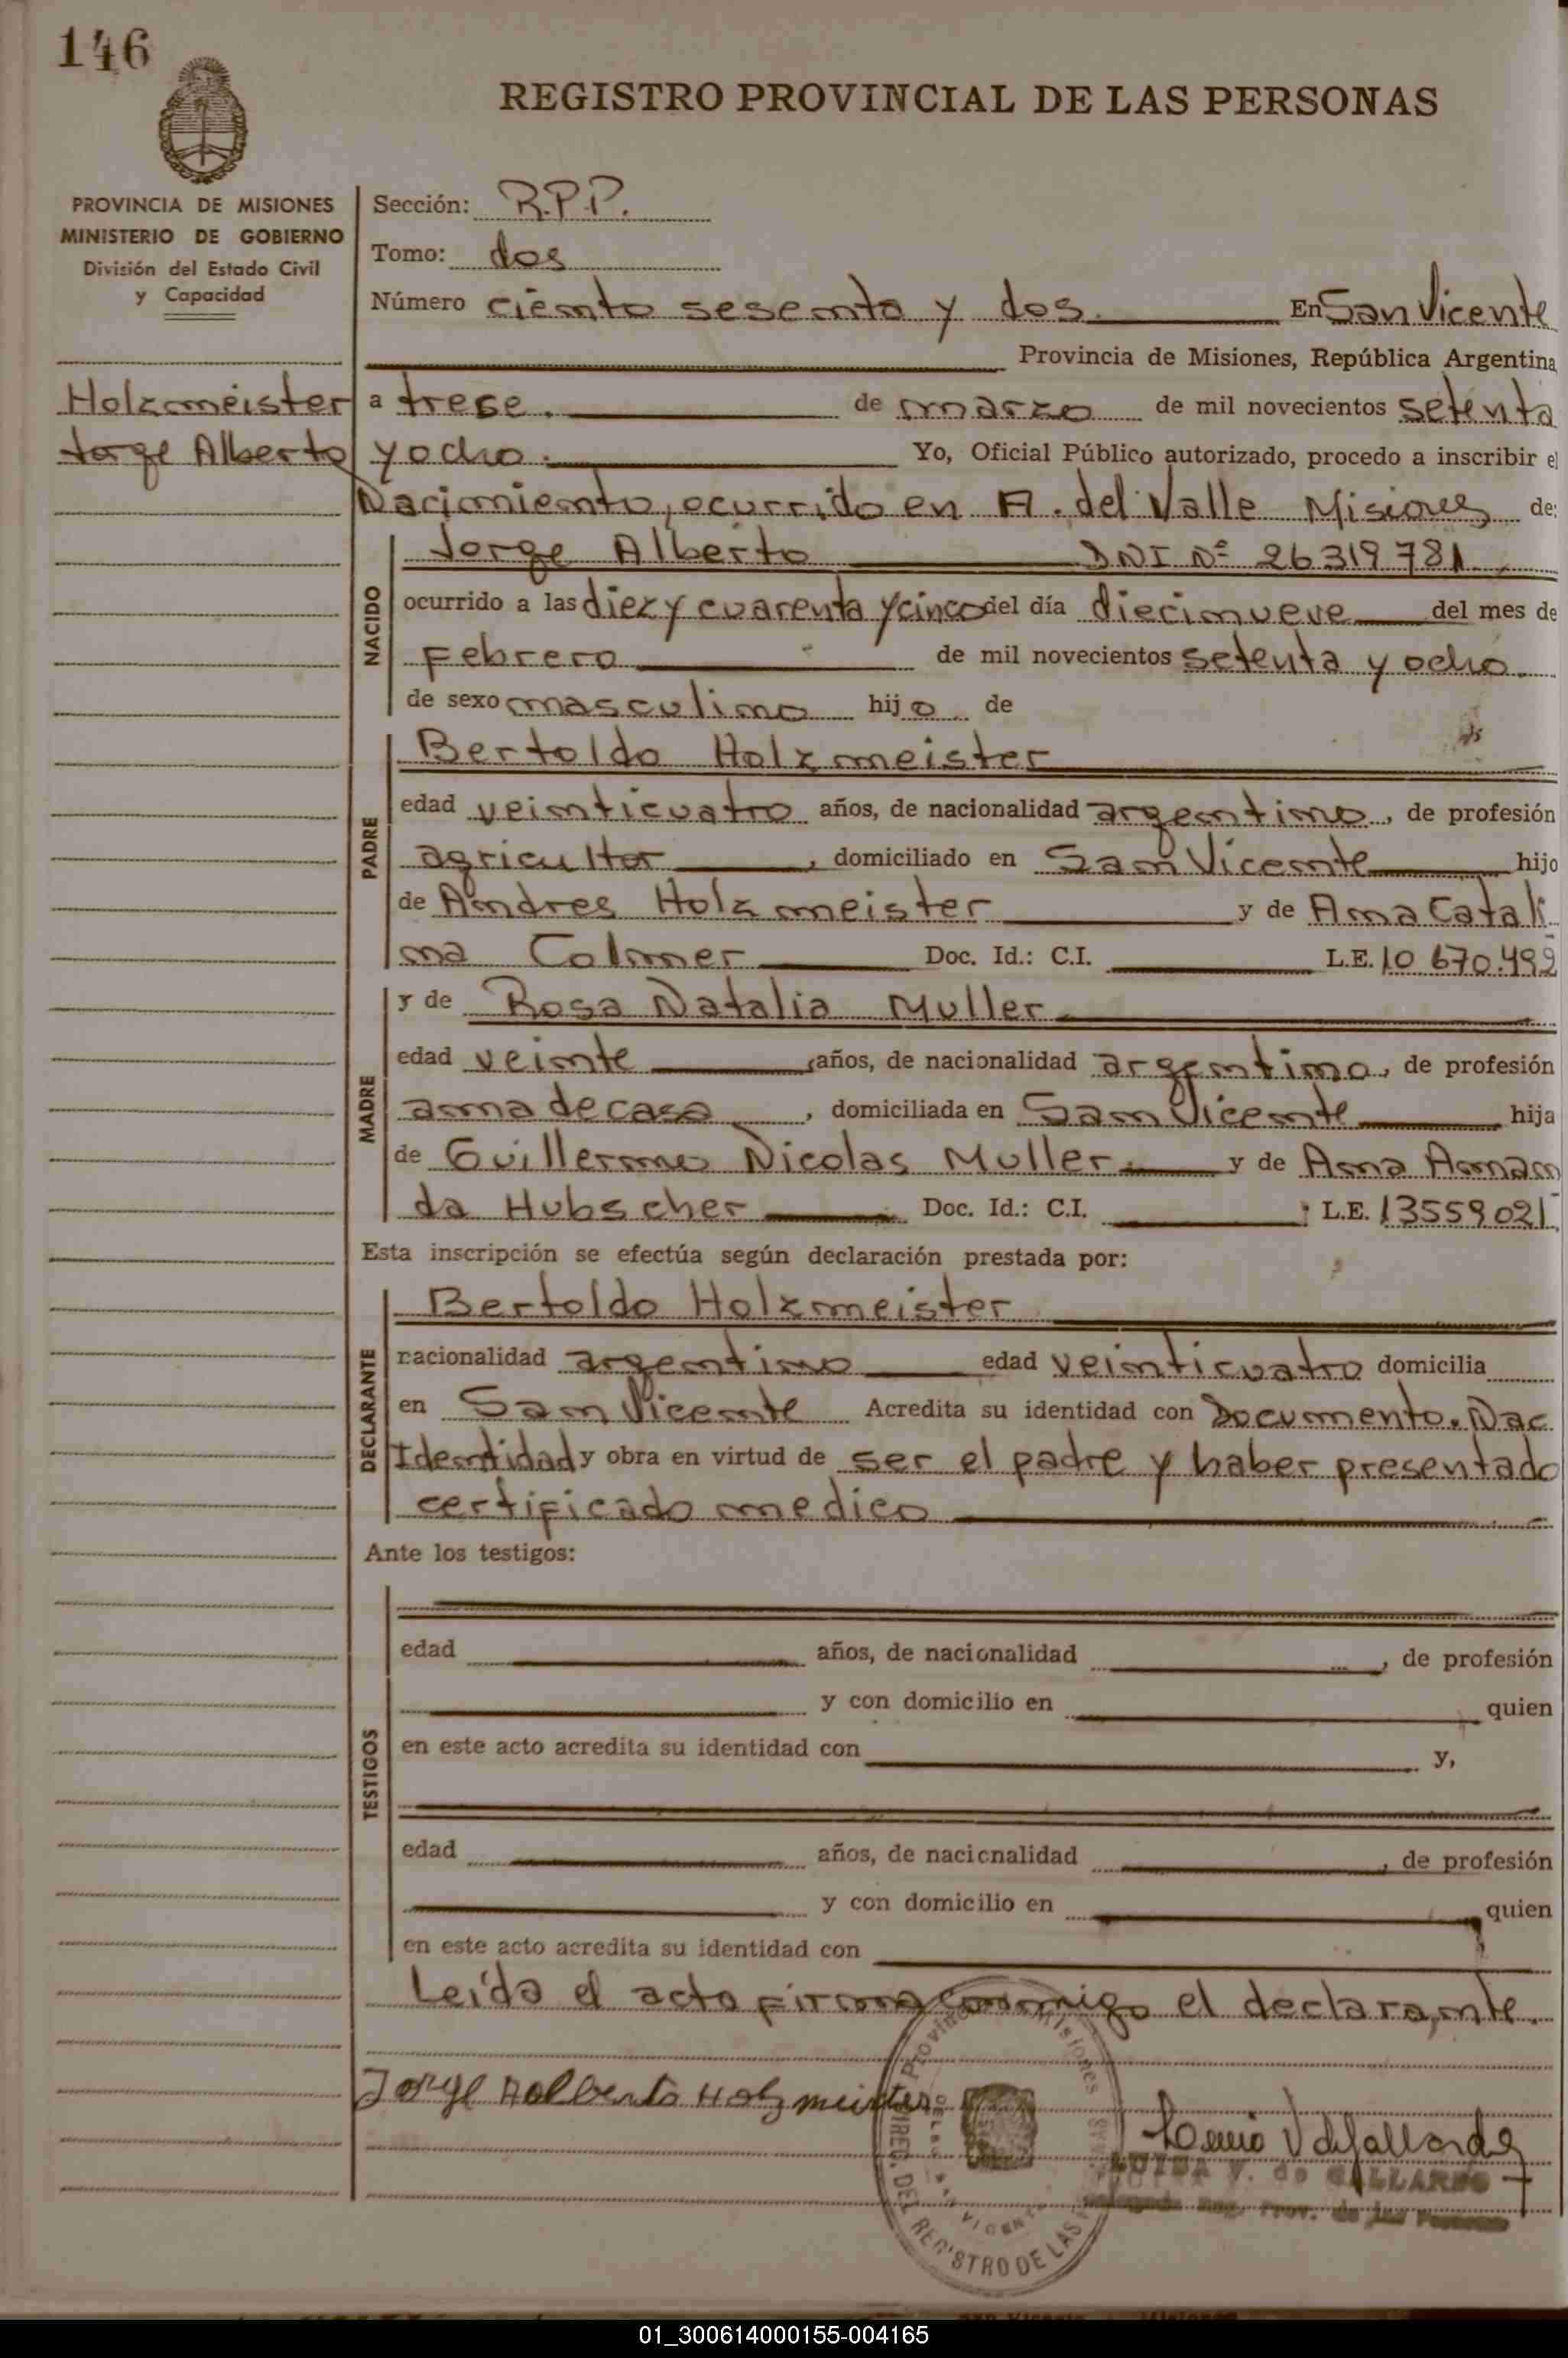 146
REGISTRO PROVINCIAL DE LAS PERSONAS
PROVINCIA DE MISIONES
MINISTERIO DE GOBIERNO
División del Estado Civil
y Capacidad
Holzmeister
Jorge Alberto
Sección: R.P.P.
Tomo: dos
Número ciento sesenta y dos. En San Vicente
Provincia de Misiones, República Argentina
a trece. de marzo de mil novecientos setenta
y ocho. Yo, Oficial Público autorizado, procedo a inscribir el
Nacimiento, ocurrido en A. del Valle Misiones de:
NACIDO
Jorge Alberto DNI Nº 26319781
ocurrido a las diez y cuarenta y cinco del día diecinueve del mes de
febrero de mil novecientos setenta y ocho.
de sexo masculino hijo de
PADRE
Bertoldo Holzmeister
edad veinticuatro años, de nacionalidad argentino, de profesión
agricultor, domiciliado en San Vicente hijo
de Andres Holzmeister y de Ana Catali
na Colmer Doc. Id.: C.I. L.E. 10 670.492
MADRE
y de Rosa Natalia Muller
edad veinte, años, de nacionalidad argentina, de profesión
ama de casa, domiciliada en San Vicente hija
de Guillermo Nicolas Muller y de Ana Aman
da Hubscher Doc. Id.: C.I. L.E. 13559021
Esta inscripción se efectúa según declaración prestada por:
DECLARANTE
Bertoldo Holzmeister
nacionalidad argentino edad veinticuatro domicilia
en San Vicente Acredita su identidad con Documento. Nac
Identidad y obra en virtud de ser el padre y haber presentado
certificado medico
Ante los testigos:
TESTIGOS
edad años, de nacionalidad , de profesión
y con domicilio en quien
en este acto acredita su identidad con y,
edad años, de nacionalidad , de profesión
y con domicilio en quien
en este acto acredita su identidad con
Leída el acta firma conmigo el declarante.
Jorge Aolberto Holzmeister
LUISA V. de GALLARDO
Reg. Prov. de las Personas
DIREC. DEL REGISTRO DE LAS
SAN VICENTE
01_300614000155-004165